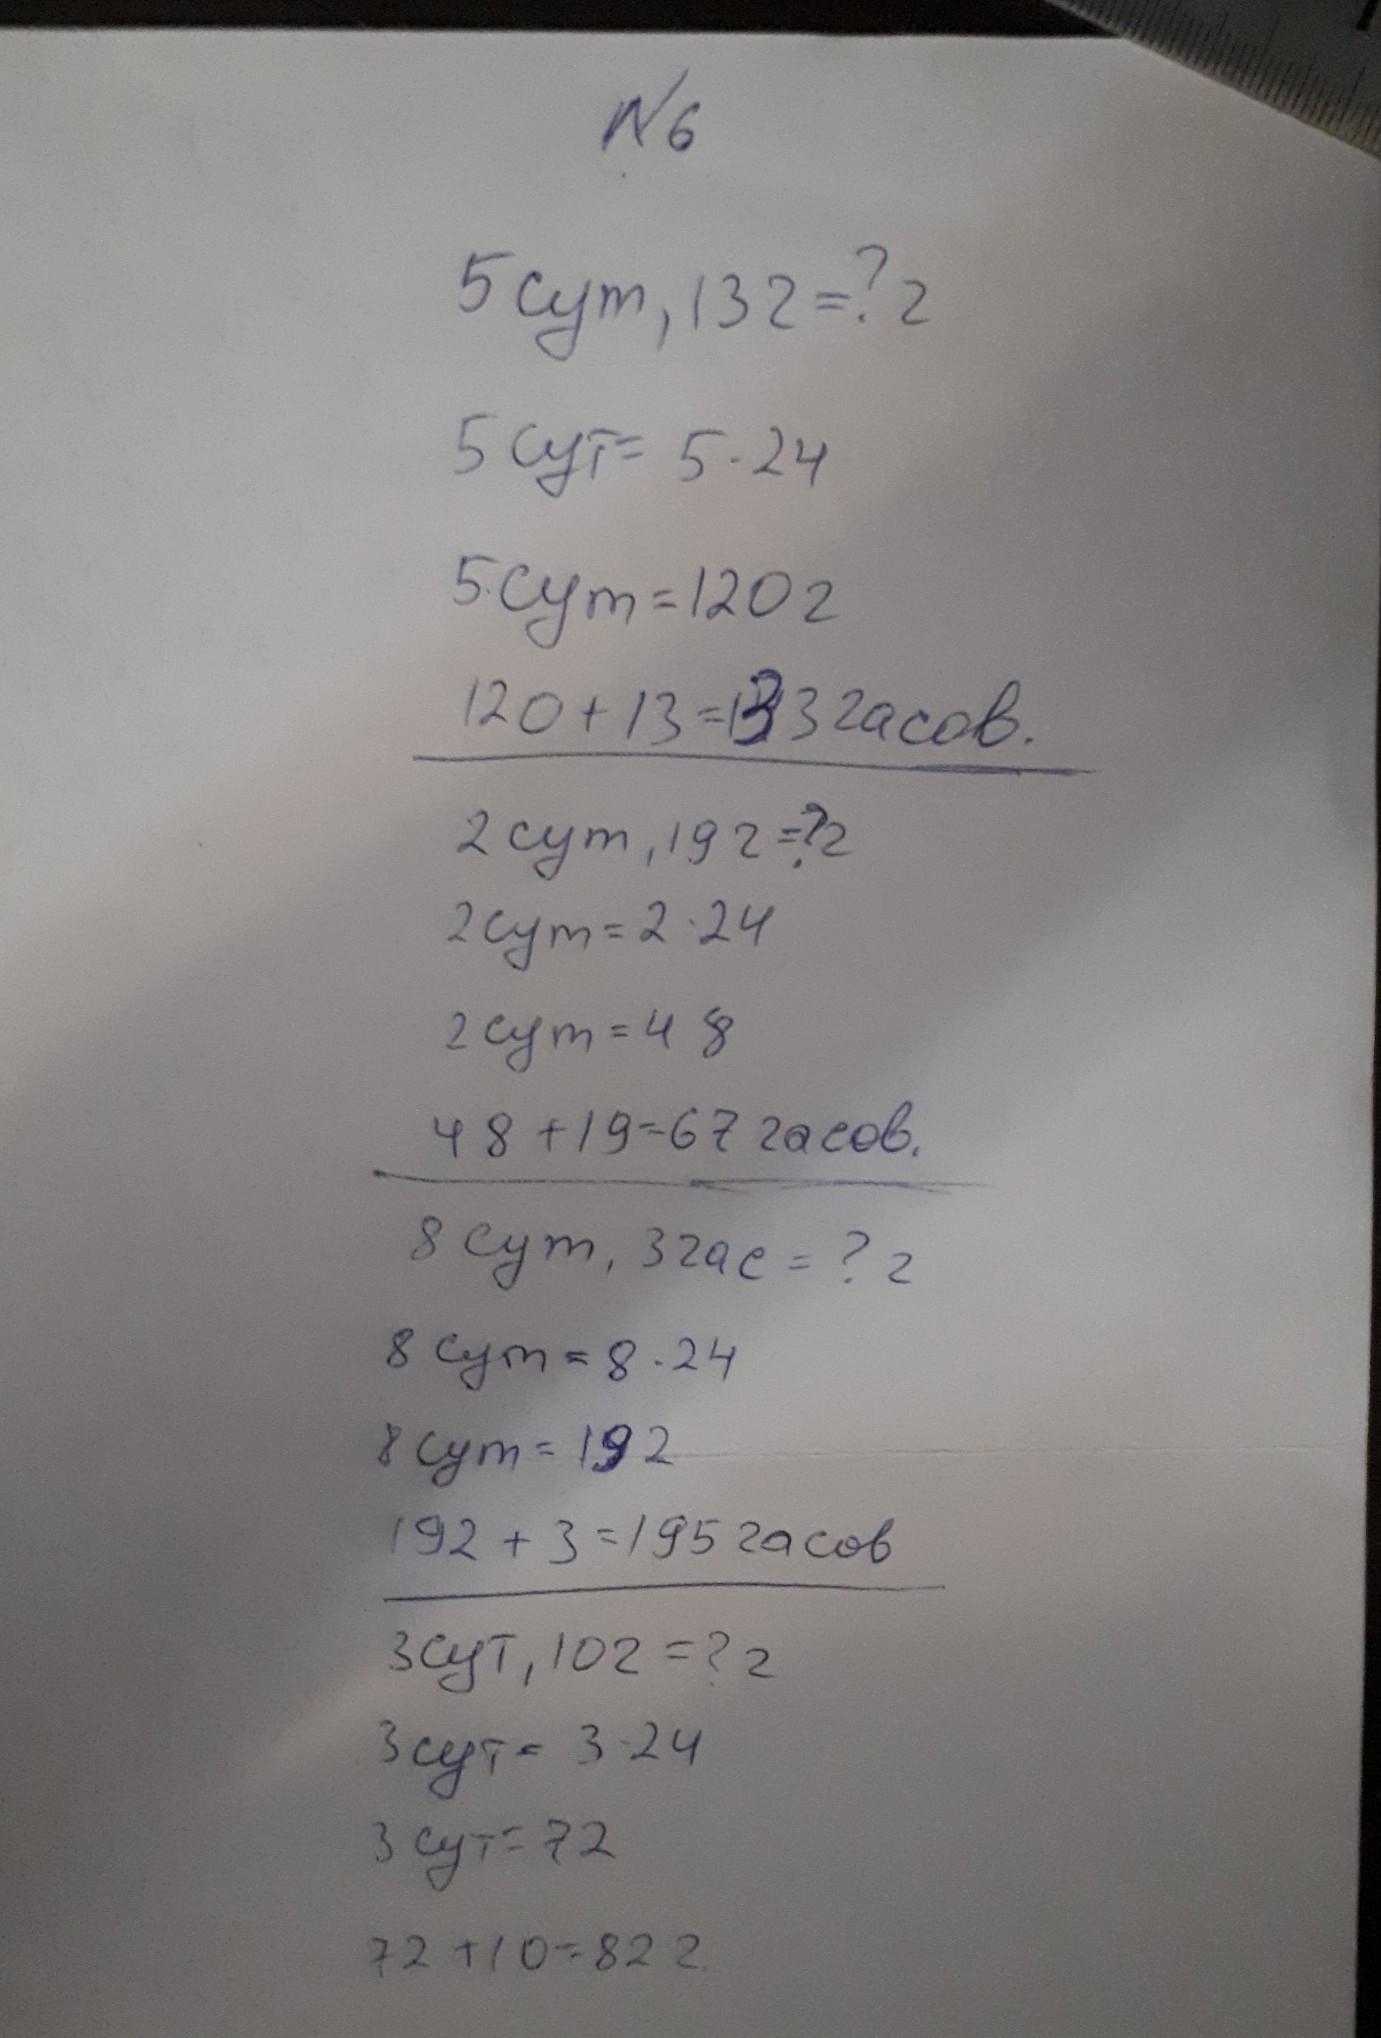 №6
5 сут, 13 ч = ? ч
5 сут = 5 · 24
5 сут = 120 ч
120 + 13 = 133 часов.
2 сут, 19 ч = ? ч
2 сут = 2 · 24
2 сут = 48
48 + 19 = 67 часов.
8 сут, 3 час = ? ч
8 сут = 8 · 24
8 сут = 192
192 + 3 = 195 часов
3 сут, 10 ч = ? ч
3 сут = 3 · 24
3 сут = 72
72 + 10 = 82 ч.